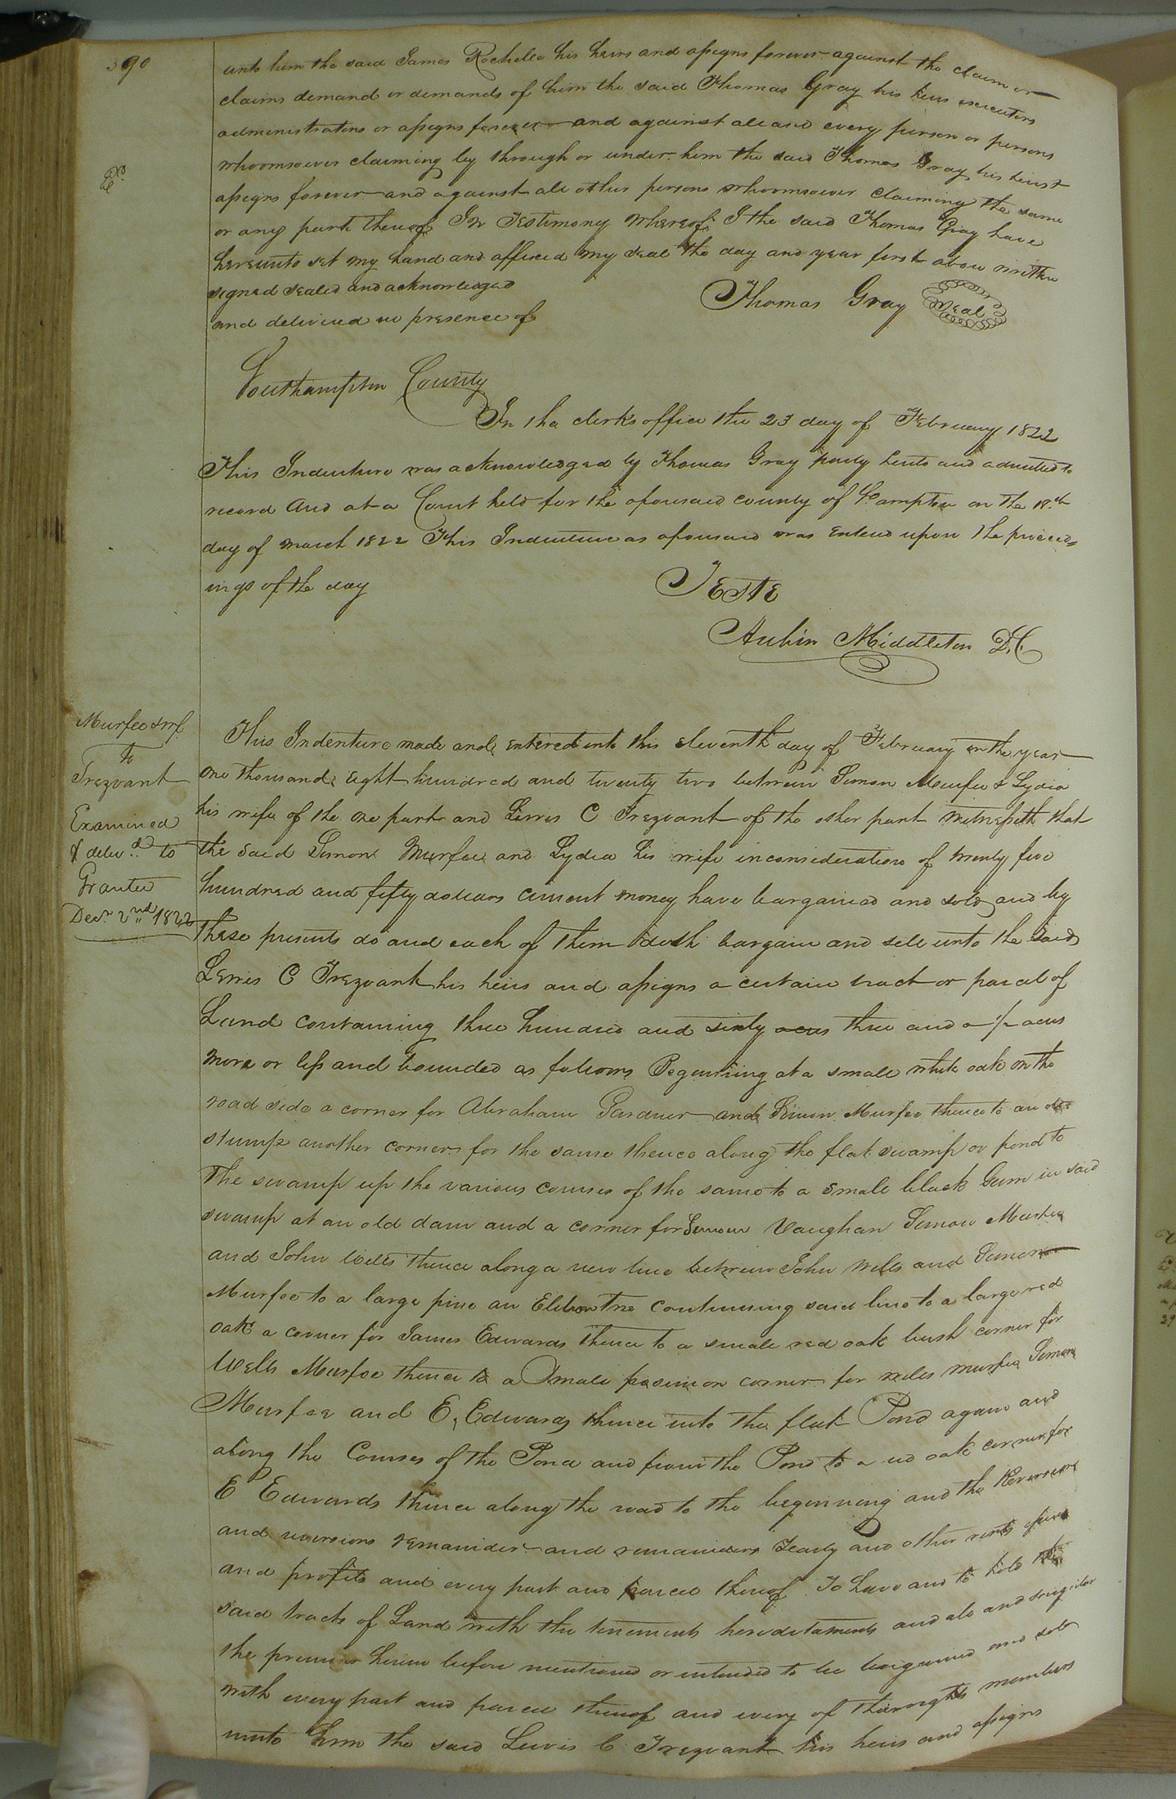 390
unto him the said James Rochelle his heirs and assigns forever against the claim or
claims demand or demands of him the said Thomas Gray his heirs executors
administrators or assigns forever and against all and every person or persons
whoomsoever claiming by through or under him the said Thomas Gray his heirs
Exd
assigns forever and against all other persons whoomsoever claiming the same
or any part thereof In Testimony Whereof I the said Thomas Gray have
hereunto set my hand and affixed my seal the day and year first above written
signed sealed and acknowledged
Thomas Gray Seal
and delivered in presence of
Southampton County
In the clerks office the 23 day of February 1822
This Indenture was acknowledged by Thomas Gray party hereto and admitted to
record And at a Court held for the aforesaid county of So ampton on the 18th
day of March 1822 This Indenture as aforesaid was entered upon the proceed
ings of the day
Teste
Aubin Middleton DC
Murfee & wf
To
Trezvant
Examined
& delivd to
Grantee
Decr 2nd 1822
This Indenture made and entered into this eleventh day of February in the year
one thousand eight hundred and twenty two between Simon Murfee & Lydia
his wife of the one part and Lewis C Trezvant of the other part Witnesseth that
the said Simon Murfee and Lydia his wife in consideration of twenty five
hundred and fifty dollars current money have bargained and sold and by
these presents do and each of them doth bargain and sell unto the said
Lewis C Trezvant his heirs and assigns a certain tract or parcel of
Land containing three hundred and sixty acres three and a 1/2 acres
more or less and bounded as follows Beginning at a small white oak on the
road side a corner for Abraham Gardner and Simon Murfee thence to an old
stump another corner for the same thence along the flat swamp or pond to
The swamp up the various courses of the same to a small black Gum in said
swamp at an old dam and a corner for Simon Vaughan Simon Murfee
and John Wells thence along a new line between John Wells and Simon
Murfee to a large pine an Elebow tree continuing said line to a large red
oak a corner for James Edwards thence to a small red oak bush corner for
Wells Murfee thence to a small corner for Miles Murfee Simon
Murfee and E. Edwards thence into the flat Pond again and
along the Courses of the Pond and from the Pond to a red oak corner for
E Edwards thence along the road to the beginning and the Reversion
and reversions remainder and remainders Yearly and other rents issues
and profits and every part and parcel thereof To have and to hold the
said tract of Land with the tenements hereditaments and all and singular
the premises herein before mentioned or intended to be bargained and sold
with every part and parcel thereof and every of members
unto him the said Lewis C Trezvant his heirs and assigns